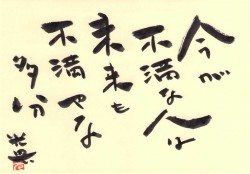 今が
不満な人は
未来も
不満やな
多分